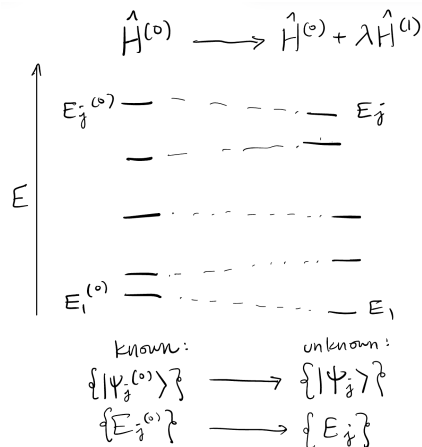 Ĥ⁽⁰⁾ ⟶ Ĥ⁽⁰⁾ + λĤ⁽¹⁾
E_j⁽⁰⁾ E_j
E
E₁⁽⁰⁾ E₁
known: unknown:
{|Ψ_j⁽⁰⁾⟩} ⟶ {|Ψ_j⟩}
{E_j⁽⁰⁾} ⟶ {E_j}